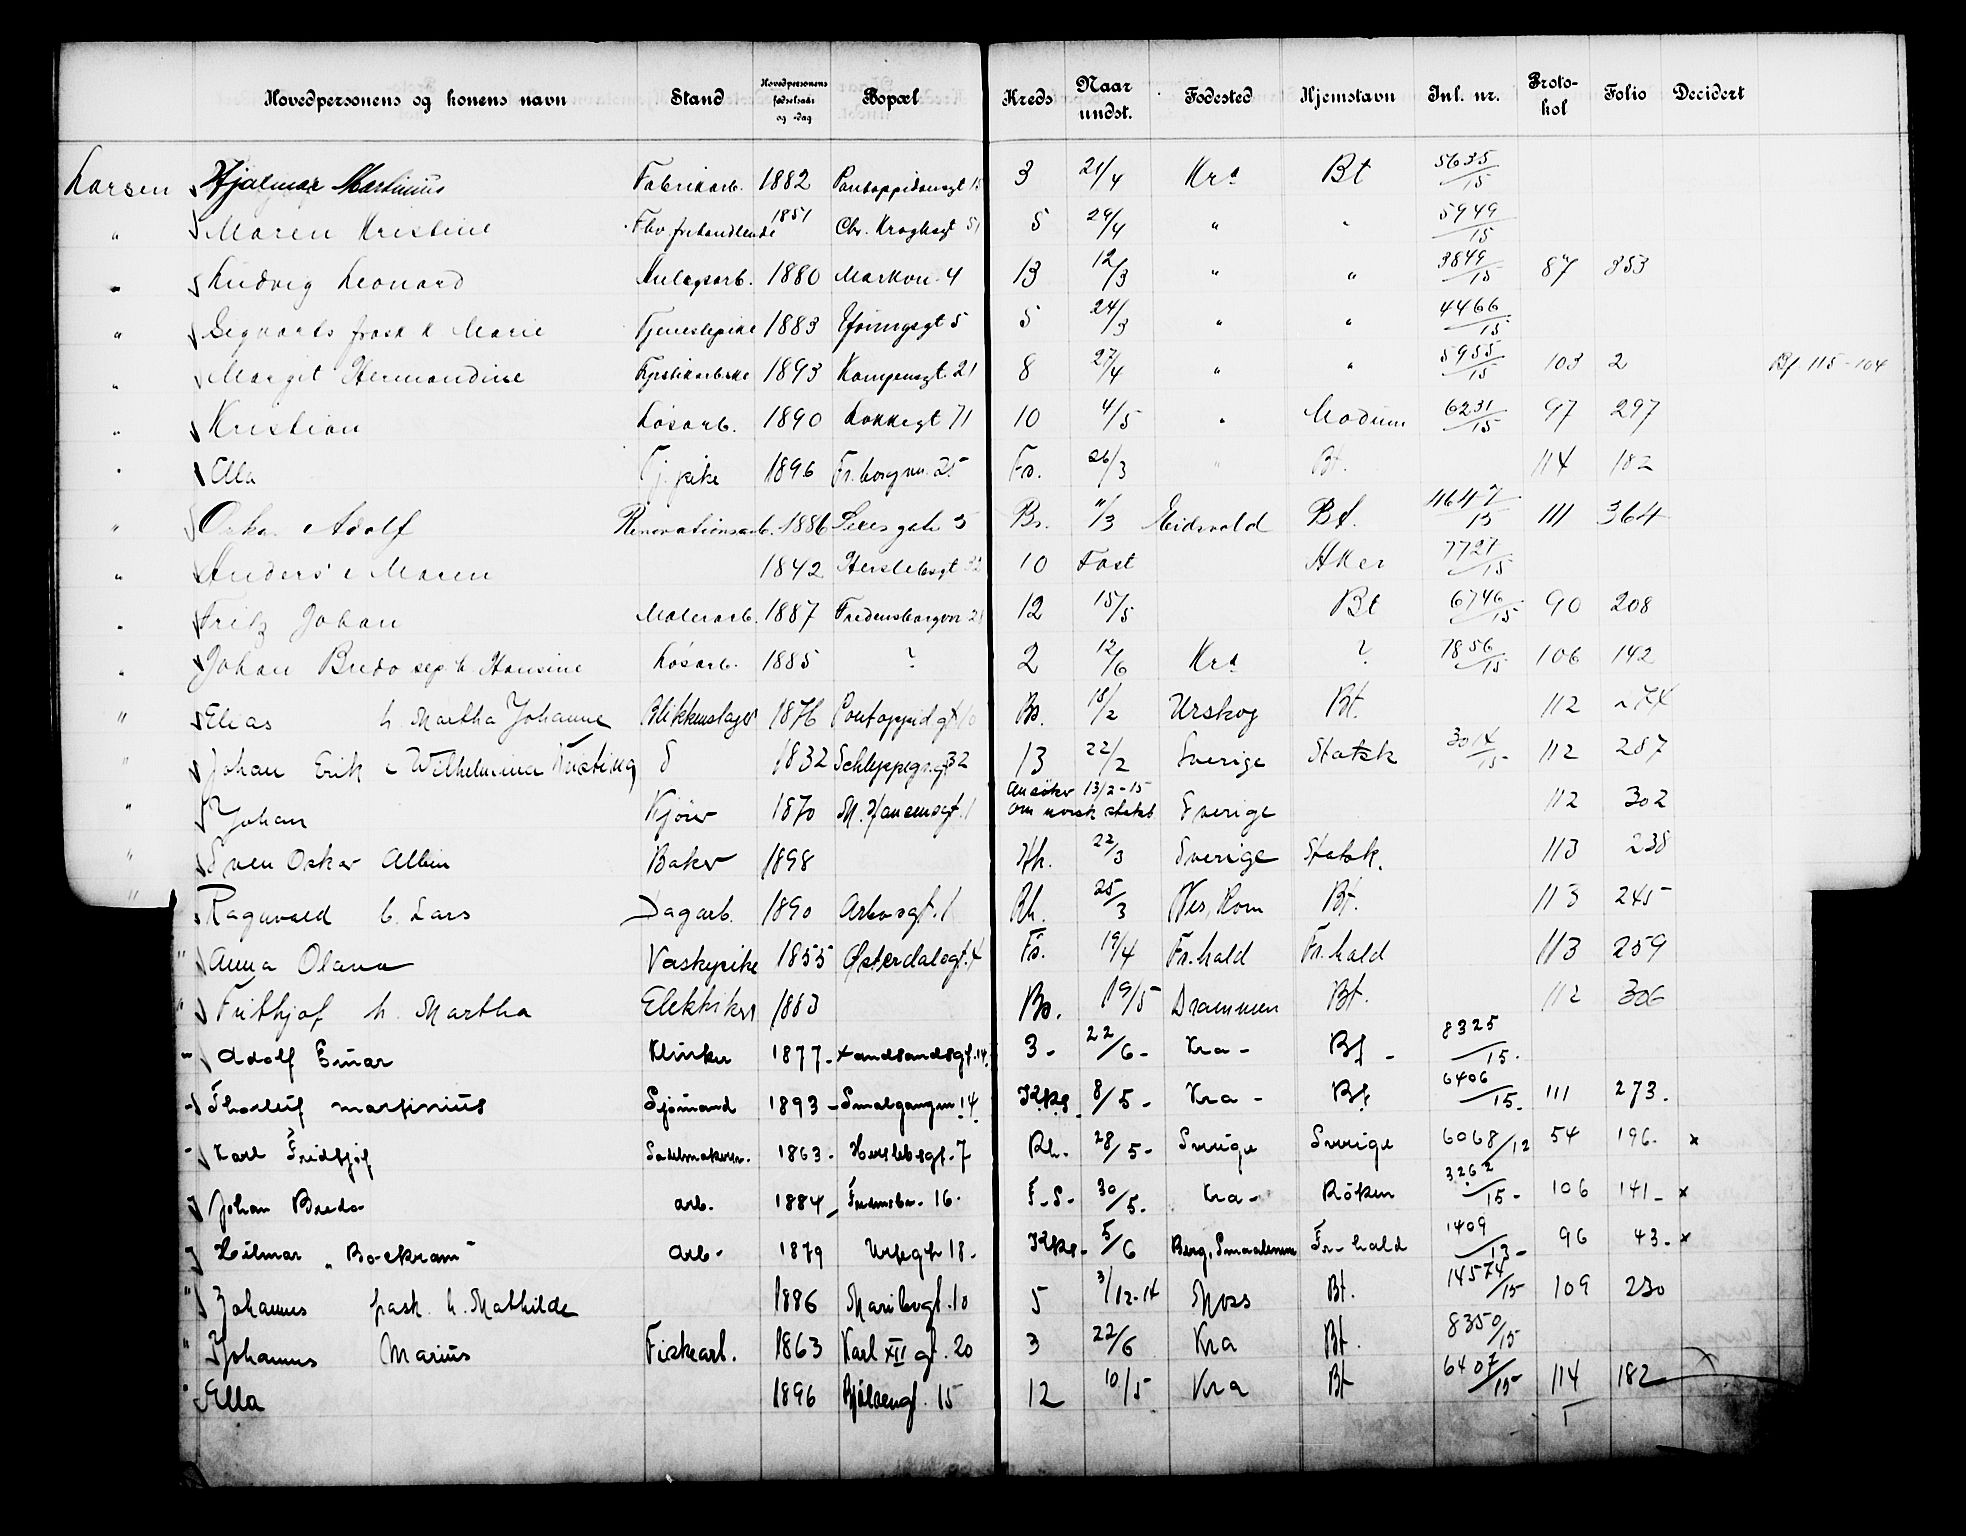 Hovedpersonens og konens navn Stand Hovedpersonens fødselsaar og -dag Bopæl Kreds Naar undst. Fødested Hjemstavn Inl. nr. Proto-kol Folio Decidert
Larsen Hjalmar Martinius Fabrikarb. 1882 Pontoppidansgt 15 3 21/4 Kra Bt 5635/15
" Maren Kristine 1851 Chr. Kroghsgt 51 5 29/4 " " 5949/15
" Ludvig Leonard Anlegsarb. 1880 Markvn. 4 13 12/3 " " 3849/15 87 353
" Marie Tjenestepike 1883 5 5 24/3 " " 4466/15
" Margit Hermandine 1893 Kampensgt. 21 8 27/4 " " 5955/15 103 2 Bf. 115-104
" Kristian Løsarb. 1890 Lakkegt 71 10 4/5 " Modum 6231/15 97 297
" Ella Tj. pike 1896 Fr. borgvn. 25 Fs. 26/3 " Bt. 114 182
" Oskar Adolf Renovationsarb. 1886 5 Bs. 11/3 Eidsvold Bt. 4647/15 111 364
" Anders & Maren 1842 Herslebsgt 32 10 Fast Aker 7727/15
" Fritz Johan Malerarb. 1887 Fredensborgvn 21 12 15/5 Bt 6746/15 90 208
" Johan Bredo sep. h. Hansine Løsarb. 1885 ? 2 12/6 Kra ? 7856/15 106 142
" Elias h. Martha Johanne Blikkenslager 1876 Pontoppid gt 10 Bs. 18/2 Urskog Bt. 112 274
" Johan Erik & Wilhelmina Kristina S 1832 Schleppegr.gt 32 13 22/2 Sverige Statsk 3014/15 112 287
" Johan Kjører 1870 M. Hansensgt. 1 Ansøker 13/2-15 om norsk statsb Sverige 112 302
" Sven Oskar Albin Baker 1898 Hh. 22/3 Sverige Statsk. 113 238
" Ragnvald b. Lars Dagarb. 1890 Arbosgt. 1 Rh. 25/3 Nes, Rom Bt. 113 245
" Anna Olava Vaskepike 1855 Østerdalsgt. 4 Fs. 19/4 Fr.hald Fr.hald 113 259
" Frithjof h. Martha Elektriker 1883 Bs. 19/5 Drammen Bt. 112 306
" Adolf Einar Klinker 1877 14 3 - 22/6 - Kra - Bt - 8325/15.
" Thorleif Martinius Sjømand 1893 - Smalgangen 14 Kkg. 8/5 - Kra - Bt 6406/15. 111 273.
" Karl Fridtjof Sadelmakersv. 1863 - Herslebsgt. 7 Rh. 28/5 - Sverige Sverige 6068/12 54 196. x
" Johan Bredo arb. 1884 Fredensbr. 16. F.S. 30/5. Kra - Røken 3262/15 - 106 141 - x
" Hilmar "Bockram" arb. 1879 Urtegt 18. Kkg. 5/6 Berg, Smaalenene Fr-hald 1409/13 - 96 43. x
" Johannes frask. h. Mathilde 1886 Maribogt. 10 5 3/12-14 Moss Bt. 14574/15 109 230
" Johannes Marius Fiskearb. 1863 Karl XII gt. 20 3 22/6 Kra Bt. 8350/15
" Ella 1896 Bjølsengt. 15 12 10/5 Kra Bt 6407/15 114 182